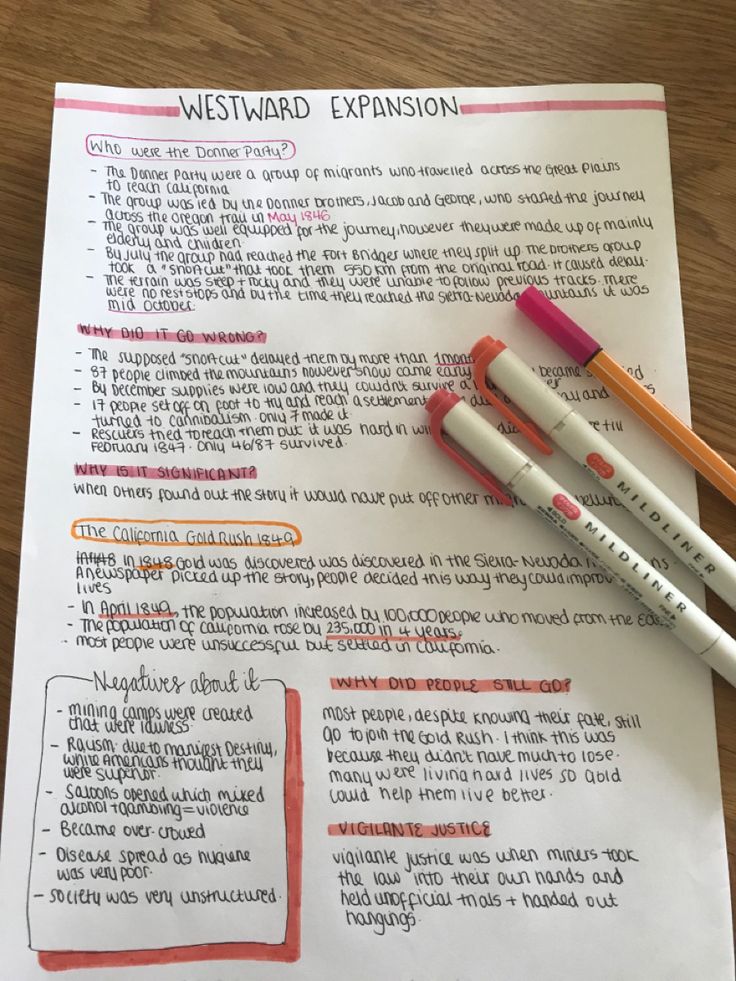 WESTWARD EXPANSION
Who were the Donner Party?
- The Donner Party were a group of migrants who travelled across the Great Plains
to reach california
- The group was led by the Donner brothers, Jacob and George, who started the journey
across the oregon trail in May 1846
- The group was well equipped for the journey, however they were made up of mainly
elderly and children.
- By July the group had reached the Fort Bridger where they split up. The brothers group
took a "shortcut" that took them 550 km from the original road. it caused delay.
- The terrain was steep + rocky and they were unable to follow previous tracks. There
were no rest stops and by the time they reached the Sierra-Nevada mountains it was
mid October.
WHY DID IT GO WRONG?
- The supposed "shortcut" delayed them by more than 1 month
- 87 people climbed the mountains however snow came early became
- By December supplies were low and they couldn't survive a
- 17 people set off on foot to try and reach a settlement and
turned to cannibalism. only 7 made it.
- Rescuers tried to reach them but it was hard in till
February 1847. Only 46/87 survived.
WHY IS IT SIGNIFICANT?
when others found out the story it would have put off other
The California Gold Rush 1849
in 1848 in 1848 Gold was discovered was discovered in the Sierra-Nevada
A newspaper picked up the story, people decided this way they could
lives
- In April 1849, the population increased by 100,000 people who moved from the East
- The population of california rose by 235,000 in 4 years.
- most people were unsuccessful but settled in california.
Negatives about it
- mining camps were created
that were lawless
- Racism due to manifest Destiny,
white Americans thought they
were superior.
- Saloons opened which mixed
alcohol + gambling = violence
- Became over-crowed
- Disease spread as hygiene
was very poor.
- society was very unstructured.
WHY DID PEOPLE STILL GO?
most people, despite knowing their fate, still
go to join the Gold Rush. I think this was
because they didn't have much to lose.
many were living hard lives so gold
could help them live better.
VIGILANTE JUSTICE
vigilante justice was when miners took
the law into their own hands and
held unofficial trials + handed out
hangings.
MILDLINER
MILDLINER